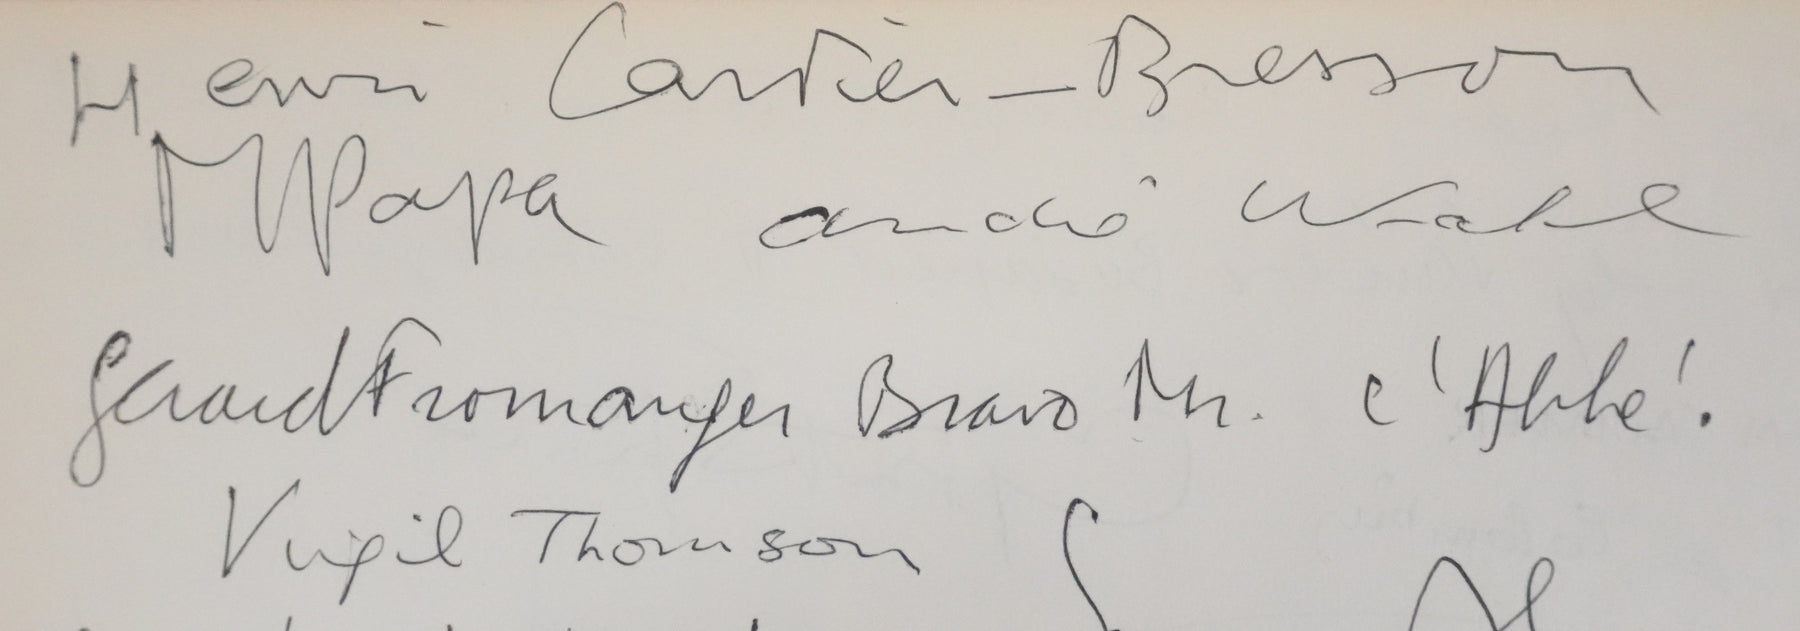 Henri Cartier-Bresson
MPapa andré
Gérard Fromanger Bravo Mr. l'Abbé!
Virgil Thomson